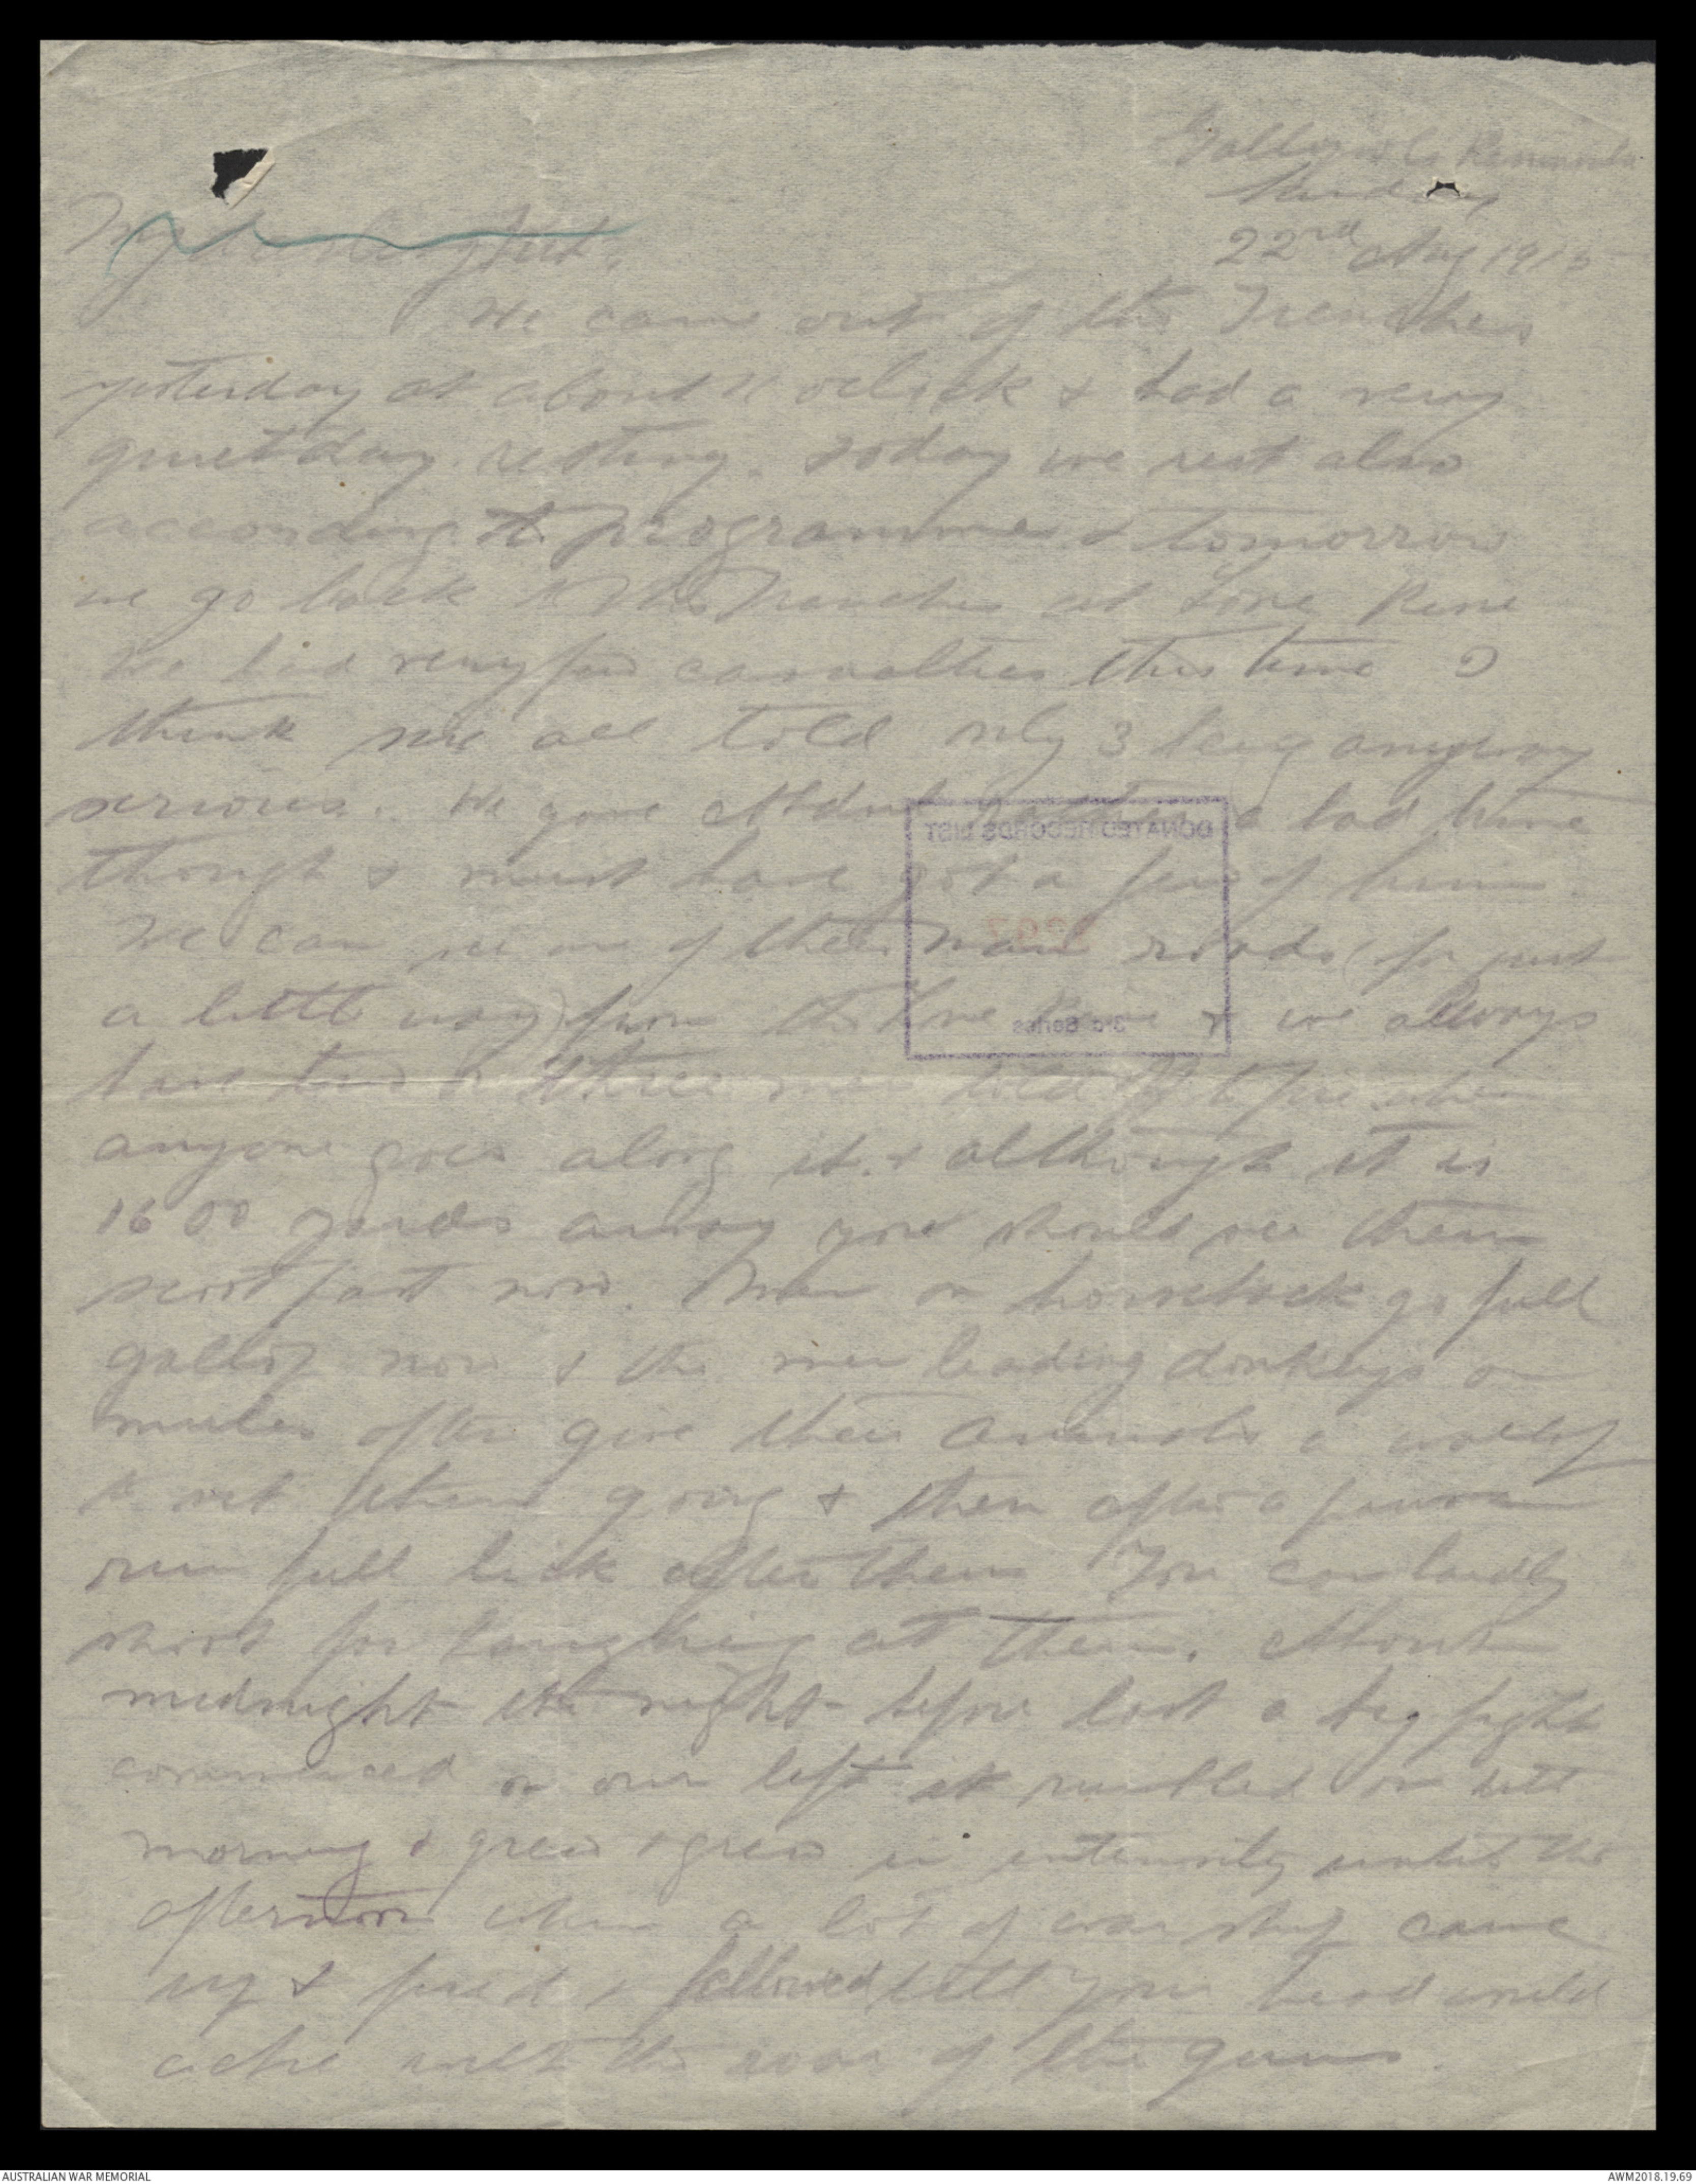 Gallipoli Peninsula
Sunday
22nd Aug 1915
My
We came out of the Trenches
yesterday at about 11 oclock & had a very
quiet day resting. today we rest also
according to programme & tomorrow
we go back to the trenches at Lone Pine
We had very few casualties this time I
think all told only 3 being anyway
serious. We gave Abdul a bad time
though & must have got a few of him.
We can see one of their main roads (for just
a little way) from the Lone Pine & we always
have two or three men told off to fire when
anyone goes along it. & although it is
1600 yards away you should see them
scoot past now. Men on horseback go full
gallop now & the men leading donkeys or
mules often give their animals a
to set them going & then after a
run full lick after them You can hardly
shoot for laughing at them. About
midnight the night before last a big fight
commenced on our left it rumbled on till
morning & grew & grew in intensity until the
afternoon when a lot of war ships came
up & fired & bellowed till your head would
ache with the roar of the guns.
DONATED RECORDS LIST
3rd Series
AUSTRALIAN WAR MEMORIAL
AWM2018.19.69